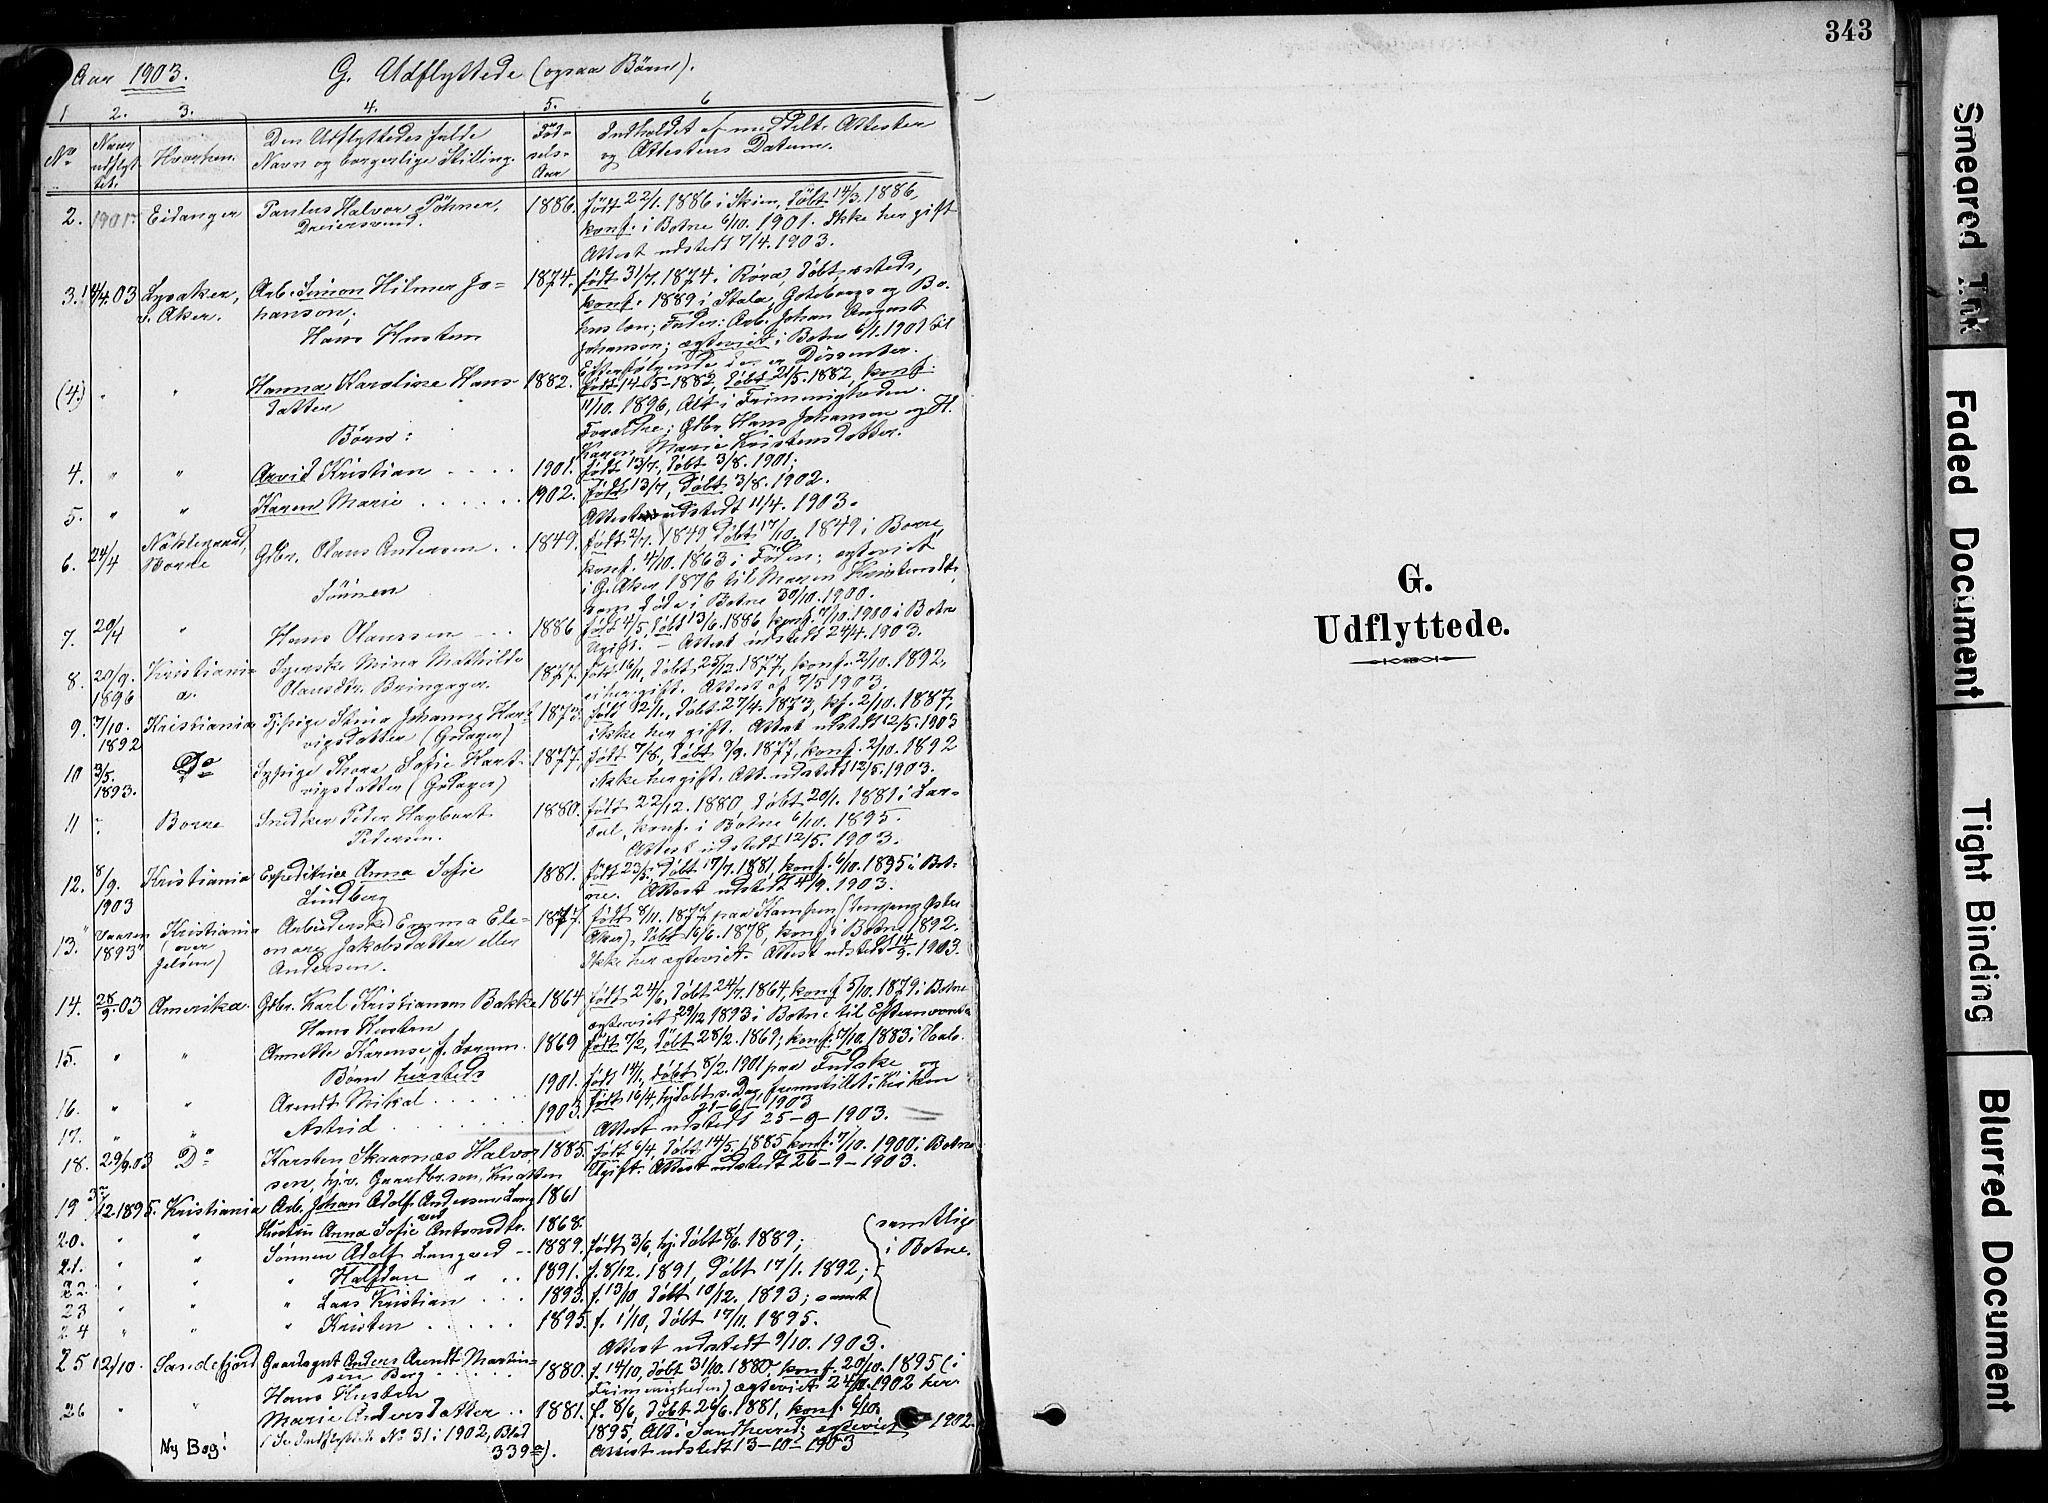 Aar 1903. G. Udflyttede (ogsaa Børn).
1 2. 3. 4. 5. 6
No Naar udflyttet. Hvorhen. Den Udflyttedes fulde Navn og borgerlige Stilling. Fødselsaar Indholdet af meddelt Attester og Attestens Datum.
2. 1901 Eidanger Paulus Halvor 1886. født 22/1. 1886 i Skien, døbt 14/3. 1886,
konf. i Botne 6/10. 1901. Ikke her gift
Attest udstedt 7/4. 1903.
3. 11/4.03 Lysaker, Arb. Simon Hilmer Jo= 1874. født 31/7. 1874 i Röra, døbt s. steds,
v. Aker. hanson; konf. 1889 i Stala, Goteborgs og Bo.
huslen; Fader: Arb. Johan August
Hans Hustru Johanson; ægteviet i Botne 6/1. 1901 til
Efterfølgende der er Dissenter.
(4.) " " Hanna Karoline Hans- 1882. født 14-5-1882, døbt 21/5. 1882, konf.
datter 11/10. 1896, Alt i Frimenigheden.
Børn: Forældre: Gdbr. Hans Johansen og H.
Karen Marie Kristensdatter.
4. " " Arvid Kristian 1901. født 13/7, døbt 3/8. 1901;
5. " " Karen Marie 1902. født 13/7, døbt 3/8. 1902.
Attest udstedt 11/4. 1903.
6. 24/4 Borre Gdbr. Olaus Andersen 1849. født 2/7. 1849, døbt 17/10. 1849 i Borre,
konf. 4/10. 1863 i ; ægteviet
i G. Aker 1876 til Maren Kristensdtr,
Sønnen som døde i Botne 30/10. 1900.
7. 20/4 " Hans Olaussen 1886 født 4/5, døbt 13/6. 1886 konf. 7/10. 1900 i Botne
Ugift. - Attest udstedt 24/4. 1903.
8. 20/9. 1896 Kristiania Syerske Mina Mathilde 1877. født 16/11, døbt 25/12. 1877, konf. 2/10. 1892,
a. Olausdtr. Bringager. ei her gift. Attest af 7/5 1903.
9. 7/10. 1892 Kristiania Tjpige Stina Johanne Hart- 1873. født 12/1., døbt 27/4. 1873, kf. 2/10. 1887,
vigsdatter (Godager) ikke her gift. Attest udstedt 12/5. 1903
10 3/5. 1893. Do Sypige Thora Sofie Hart- 1877. født 7/8, døbt 9/9. 1877, konf. 2/10. 1892
vigsdatter (Godager) ikke her gift. Att. udstedt 12/5. 1903.
11 ? Borre Snedker Peter Hagbart 1880. født 22/12. 1880, døbt 20/1. 1881 i Lar-
Pedersen. dal, konf. i Botne 6/10. 1895.
Attest udstedt 12/5. 1903.
12. 8/9. 1903 Kristiania Expeditrice Anna Sofie 1881. født 23/5. døbt 17/7. 1881, konf. 6/10. 1895 i Bot-
Lindberg ne. Attest udstedt 4/9. 1903.
13. "Vaaren 1893" Kristiania Arbeiderske Emma Ele- 1877. født 8/11. 1877 paa Kampen (Østre
(over Jeløen) onore Jakobsdatter eller Aker), døbt 16/6. 1878, konf. i Botne 1892.
Andersen. Ikke her ægteviet. Attest udstedt 14/9. 1903.
14. 28/9.03 Amerika. Gdbr. Karl Kristiansen Bakke 1864 født 24/6, døbt 24/7. 1864, konf. 5/10. 1879 i Botne
Hans Hustru ægteviet 29/12 1893 i Botne til Efternævnte
15. " " Annette Karense, f. 1869 født 7/2, døbt 28/2. 1869; konf. 7/10. 1883 i Vaale.
Børn hersteds
16. " " Arendt Mikal 1901. født 14/1, døbt 8/2. 1901 paa Fudske
17. " " Astrid 1903. født 16/4, hjdøbt s. Dag, fremstillet i Kirken
21-6-1903
Attest udstedt 25-9-1903.
18. 29/9.03 Do Karsten Skaarnæs Halvor- 1885. født 6/4, døbt 14/5. 1885 konf. 7/10. 1900 i Botne
sen, hjv. Gaardbr.søn, Knatten Ugift. Attest udstedt 26-9-1903.
19 3/12.1895. Kristiania Arb. Johan Adolf Andersen 1861
20. " " Hustru Anna Sofie Antonsdtr. 1868. (samtlige
21. " " Sønnen Adolf Langved 1889. født 3/6, hj.døbt 8/6. 1889; i Botne.
22. " " " Halfdan " 1891. f. 8/12. 1891, døbt 17/1. 1892;
23 " " " Lars Kristian 1893. f. 13/10, døbt 10/12. 1893; samt
24 " " " Kristen 1895. f. 1/10, døbt 17/11. 1895.
Attest udstedt 9/10. 1903.
25 12/10. Sandefjord Gaardsgut Anders Arendt Martin- 1880. f. 14/10, døbt 31/10. 1880, konf. 20/10. 1895 (i
sen Berg Frimenigheden) ægteviet 1902 her
Hans Hustru
26 " Marie Andersdatter 1881. f. 8/6, døbt 26/6. 1881, konf. 6/10.
(Se Indflyttet No 31 i 1902, Blad 1895, Alt i Sandherred; ægteviet 1902.
Ny Bog! 339a). Attest udstedt 13-10-1903
343
G.
Udflyttede.
Smeared Ink
Faded Document
Tight Binding
Blurred Document